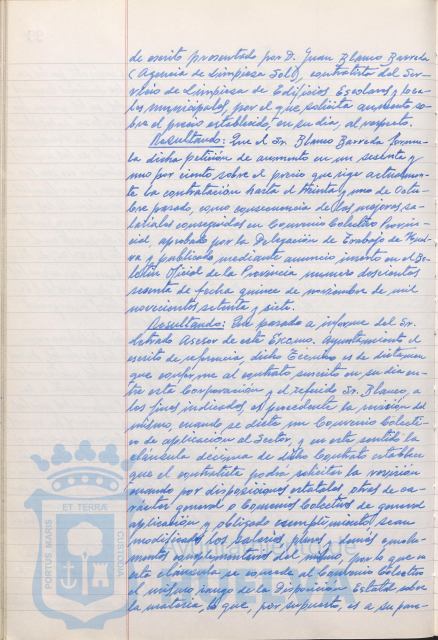 de escrito presentado por D. Juan Blanco Barreda
(Agencia de Limpieza Sol), contratista del Ser-
vicio de Limpieza de Edificios Escolares y loca-
les municipales, por el que, solicita aumento so-
bre el precio establecido, en su día, al respecto.
Resultando: Que el Sr. Blanco Barreda formu-
la dicha petición de aumento en un sesenta y
uno por ciento sobre el precio que rige actualmen-
te la contratación hasta el treinta y uno de Octu-
bre pasado, como consecuencia de las mejoras sa-
lariales conseguidas en Convenio Colectivo Provin-
cial, aprobado por la Delegación de Trabajo de Huel-
va y publicado mediante anuncio inserto en el Bo-
letín Oficial de la Provincia número doscientos
sesenta de fecha quince de noviembre de mil
novecientos setenta y siete.
Resultando: Que pasado a informe del Sr.
Letrado Asesor de este Excmo. Ayuntamiento el
escrito de referencia, dicho Técnico es de dictamen
que conforme al contrato suscrito en su día en-
tre esta Corporación y el referido Sr. Blanco, a
los fines indicados, es procedente la revisión del
mismo, cuando se dicte un Convenio Colecti-
vo de aplicación al Sector, y en este sentido la
cláusula décima de dicho Contrato establece
que el contratista podrá solicitar la revisión
cuando por disposiciones estatales, otras de ca-
rácter general o Convenios Colectivos de general
aplicación y obligado cumplimiento, sean
modificados los salarios, pluses y demás emolu-
mentos complementarios del mismo, por lo que en
esta cláusula se concede al Convenio Colectivo
el mismo rango de la Disposición Estatal sobre
la materia, lo que, por supuesto, es a su para-
PORTUS MARIS
ET TERRA
CUSTODIA